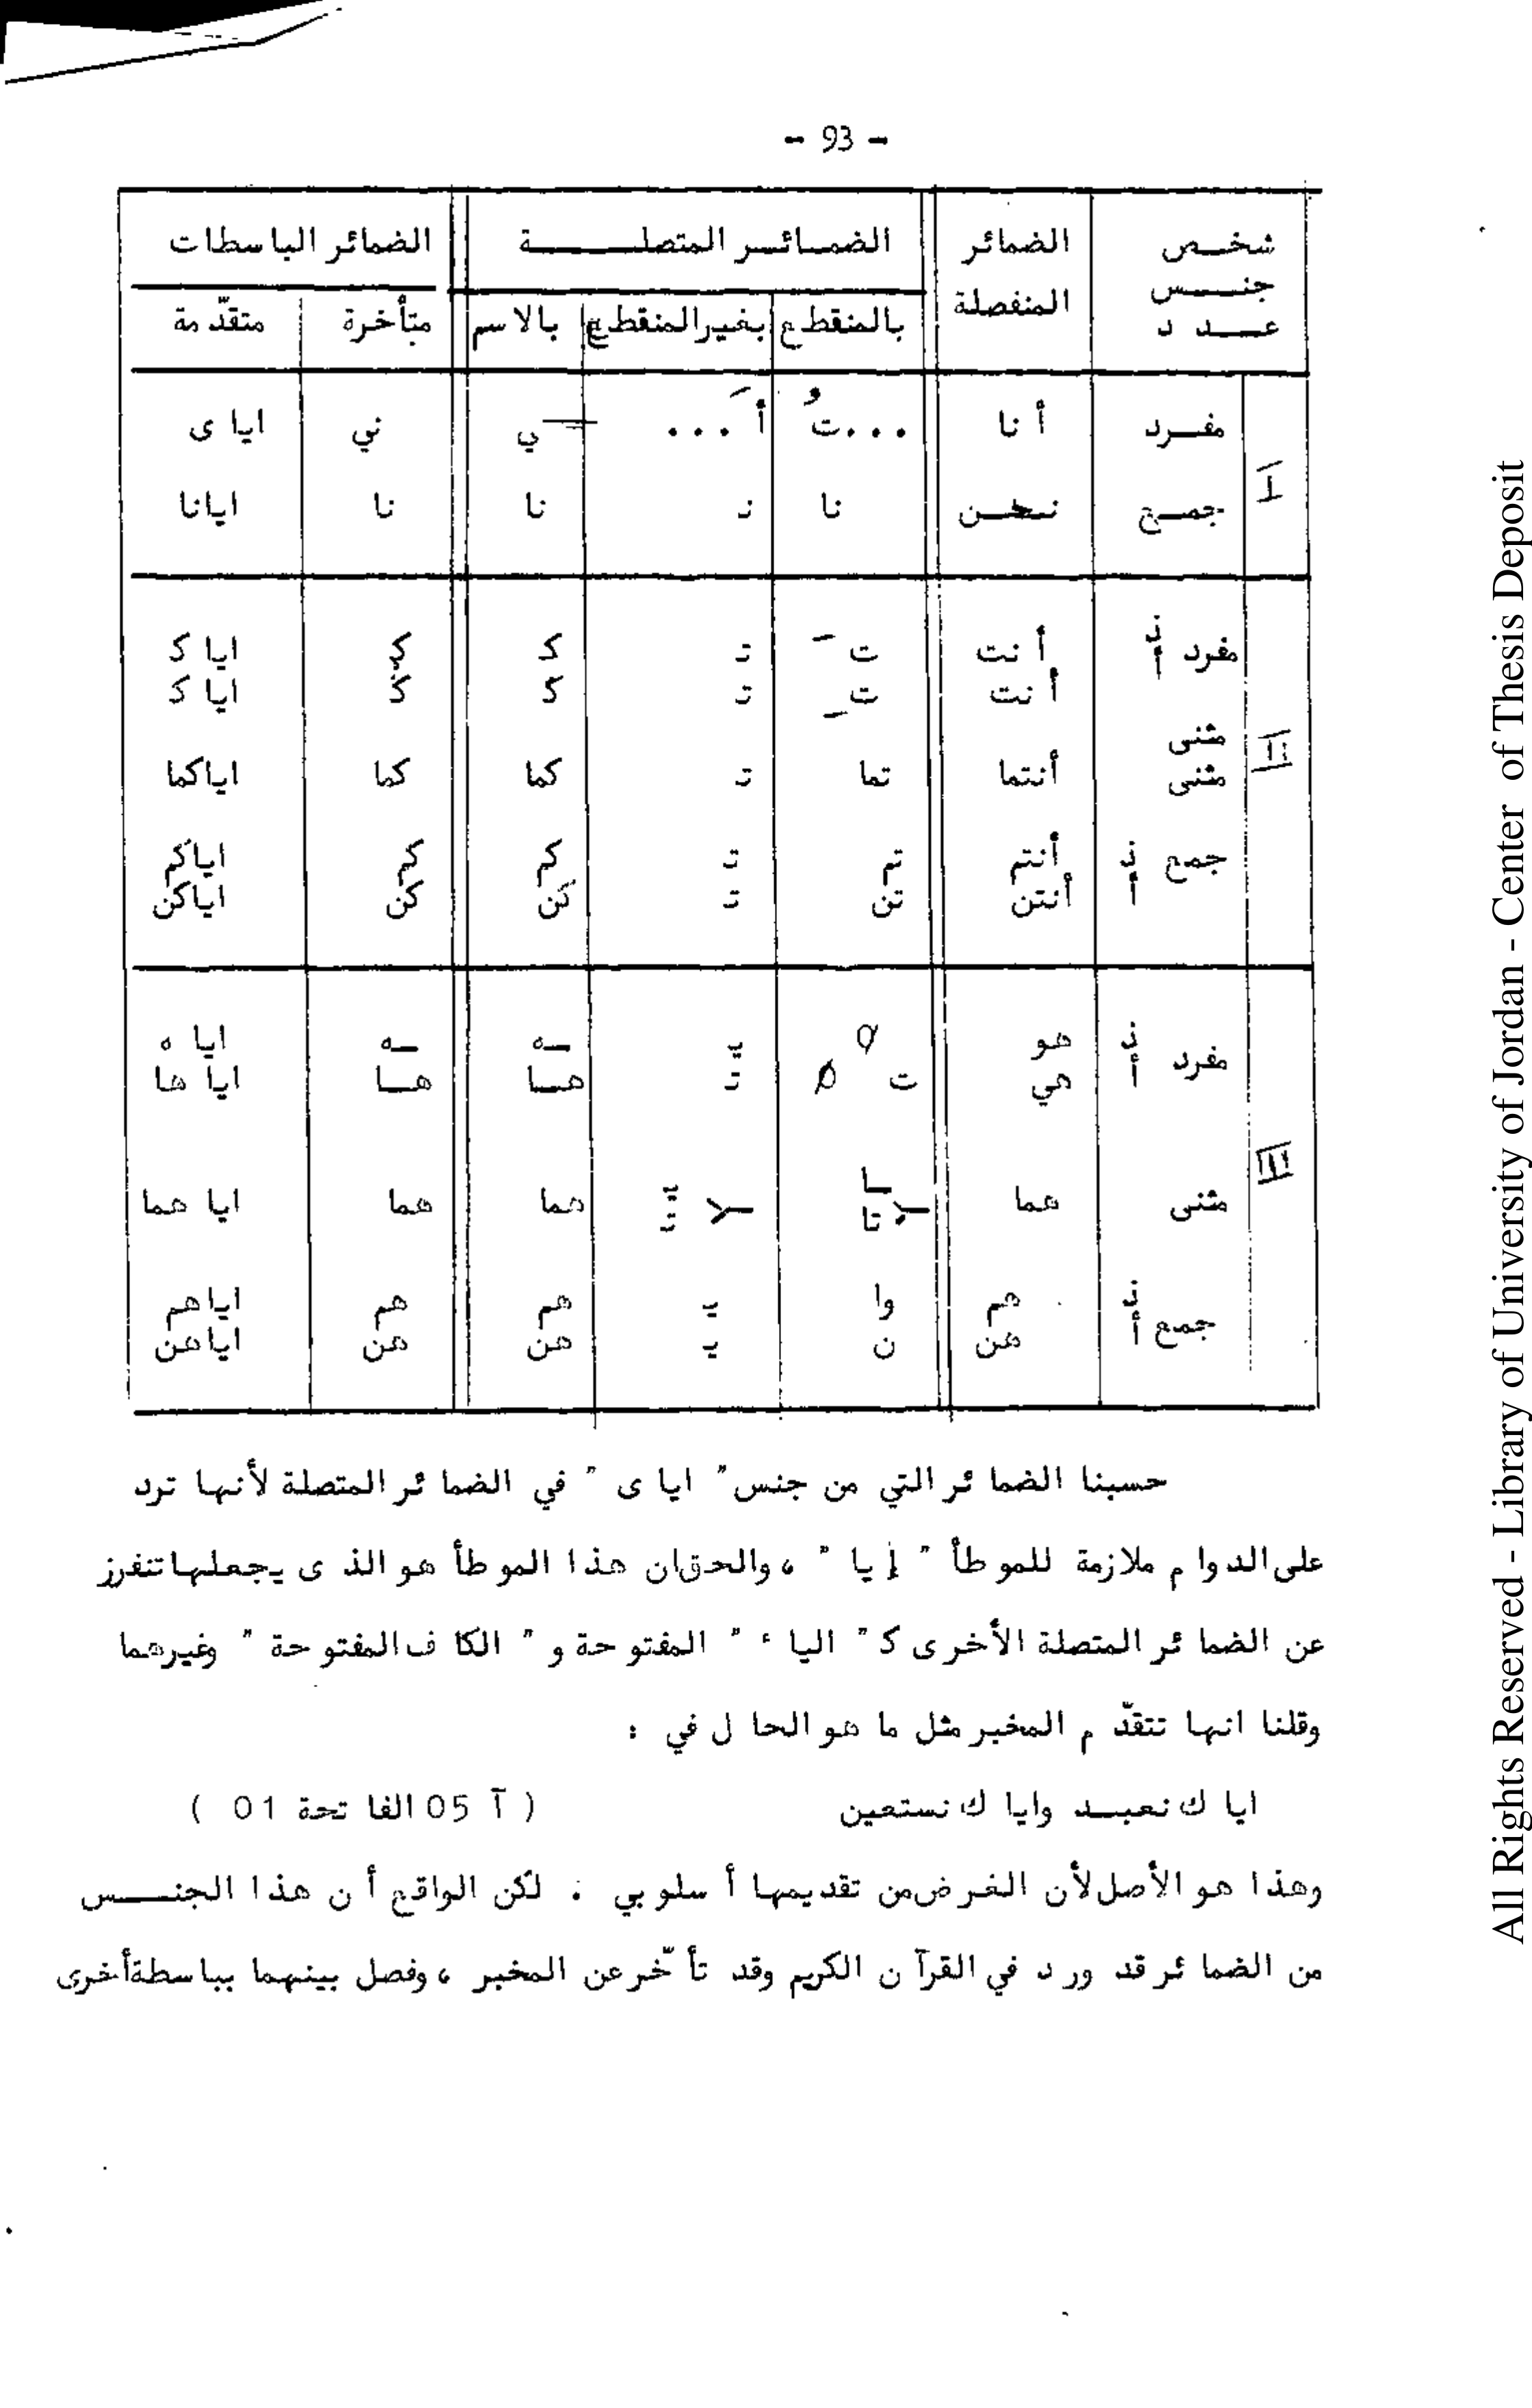 - 93 -
شخص جنس عدد | الضمائر المنفصلة | الضمائر المتصلة | الضمائر الباسطات
بالمنقطع | بغير المنقطع | بالاسم | متأخرة | متقدّمة
I مفرد | أنا | ...تُ | أَ... | ي | ني | اياى
جمع | نحن | نا | نـ | نا | نا | ايانا
II مفرد ذ | أنت | تَ | تـ | كـ | كـ | اياكـ
أ | أنت | تِ | تـ | كـ | كـ | اياكـ
مثنى
مثنى | أنتما | تما | تـ | كما | كما | اياكما
جمع ذ | أنتم | تم | تـ | كم | كم | اياكم
أ | أنتن | تن | تـ | كن | كن | اياكن
III مفرد ذ | هو | Ø | يـ | ـه | ـه | اياه
أ | هي | ت Ø | تـ | هـا | هـا | اياها
مثنى | هما | ـا / تا | يـ / تـ | هما | هما | اياهما
جمع ذ | هم | وا | يـ | هم | هم | اياهم
أ | هن | ن | يـ | هن | هن | اياهن
حسبنا الضمائر التي من جنس " اياى " في الضمائر المتصلة لأنها ترد
على الدوام ملازمة للموطأ " إيا " ، والحق ان هذا الموطأ هو الذى يجعلها تنفرز
عن الضمائر المتصلة الأخرى كـ " الياء " المفتوحة و " الكاف المفتوحة " وغيرهما
وقلنا انها تتقدّم المخبر مثل ما هو الحال في :
اياك نعبـد واياك نستعين ( آ 05 الفاتحة 01 )
وهذا هو الأصل لأن الغرض من تقديمها أسلوبي . لكن الواقع أن هذا الجنـــس
من الضمائر قد ورد في القرآن الكريم وقد تأخّر عن المخبر ، وفصل بينهما بباسطة أخرى
All Rights Reserved - Library of University of Jordan - Center of Thesis Deposit